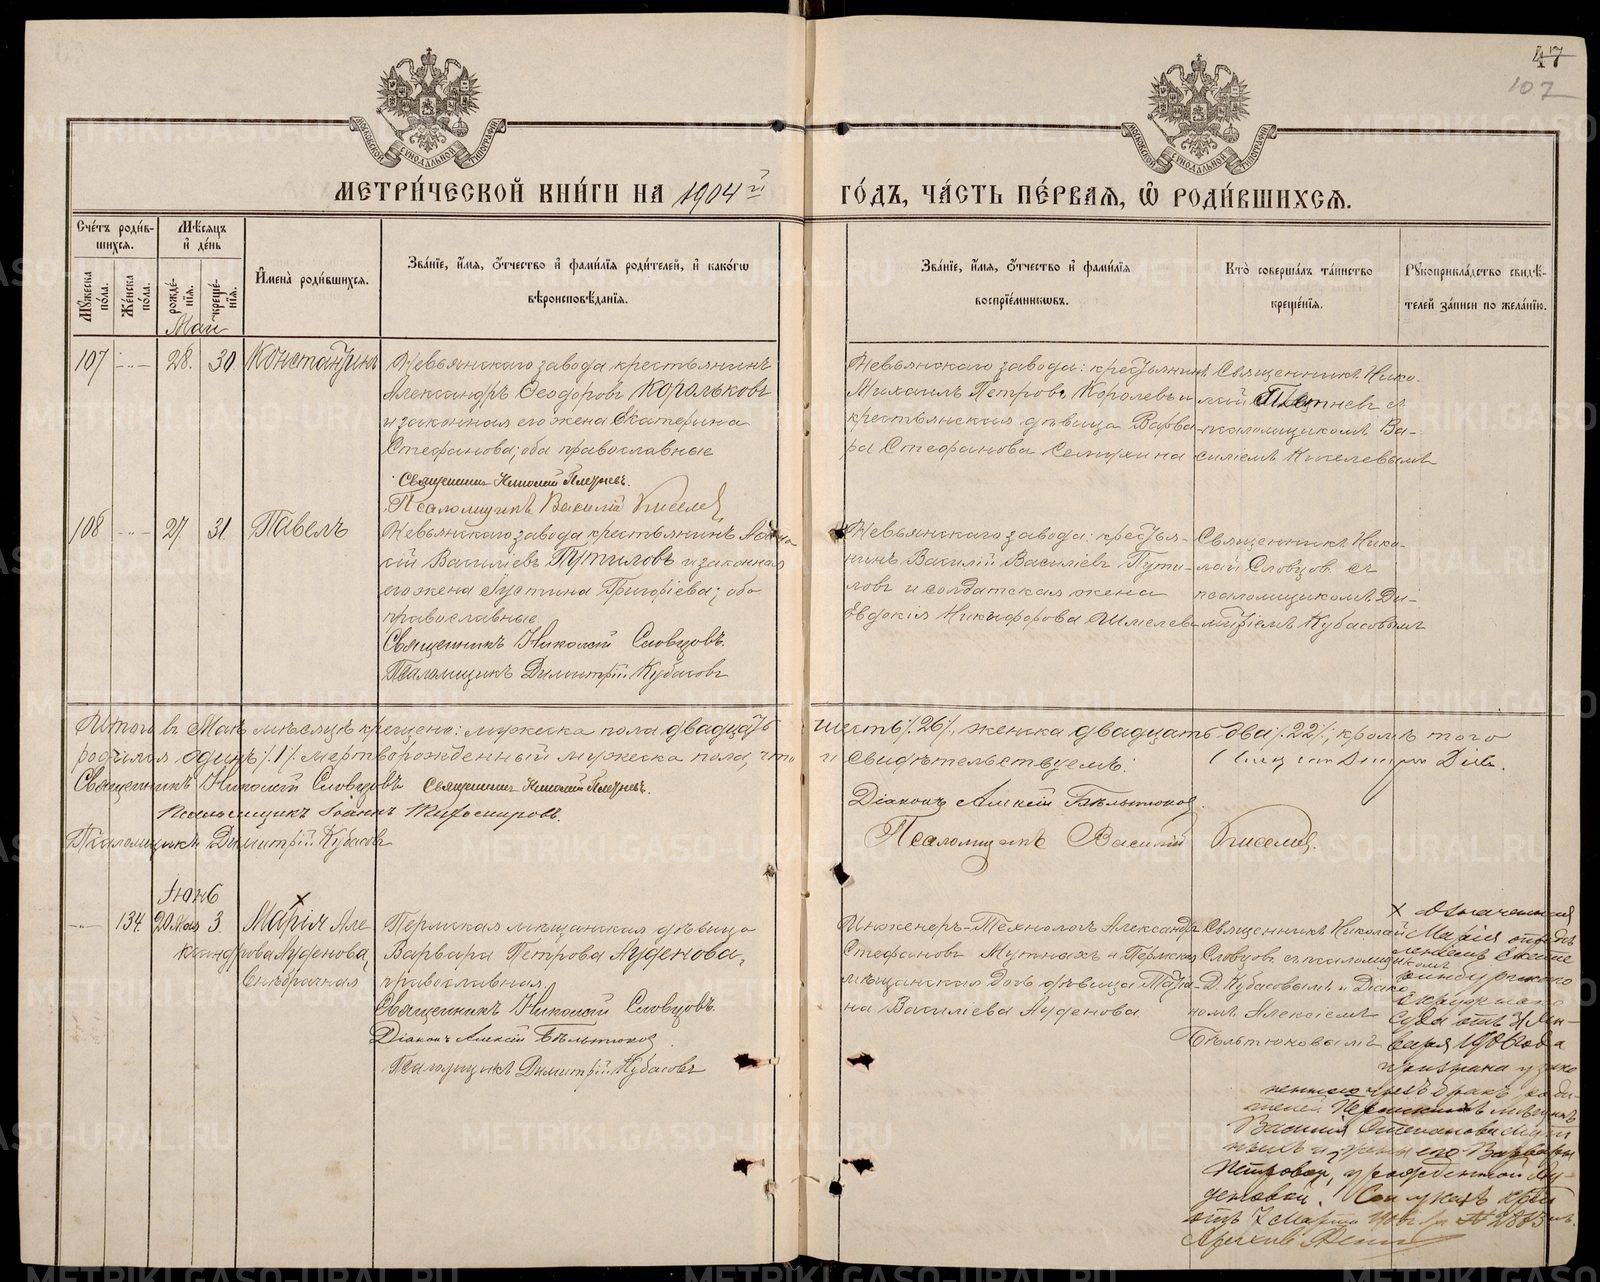 47
107
МОСКОВСКОЙ СѴНОДАЛЬНОЙ ТИПОГРАФІИ
МОСКОВСКОЙ СѴНОДАЛЬНОЙ ТИПОГРАФІИ
МЕТРИ́ЧЕСКОЙ КНИ́ГИ НА 1904 й
ГО́ДЪ, ЧА́СТЬ ПЕ́РВАЯ, Ѽ РОДИ́ВШИХСѦ.
Сче́тъ роди́в-
шихсѧ.
Мужеска по́ла.
Же́нска по́ла.
Мѣ́сѧцъ и҆ де́нь
рожде́-нїѧ.
креще́-нїѧ.
И҆мена̀ роди́вшихсѧ.
Зва́нїе, и҆́мѧ, ѻ҆́тчество и҆ фами́лїѧ роди́телей, и҆ како́гѡ
вѣроисповѣ́данїѧ.
Зва́нїе, и҆́мѧ, ѻ҆́тчество и҆ фами́лїѧ
воспрїе́мникѡвъ.
Кто̀ соверша́лъ та́инство
креще́нїѧ.
Рꙋкоприкла́дство свидѣ́-
телей за́писи по жела́нїю.
Май
107 28. 30. Константинъ
Невьянскаго завода крестьянинъ
Александръ Ѳеодоровъ Корольковъ
и законная его жена Екатерина
Стефанова; оба православные
Священникъ Николай Плетневъ.
Псаломщикъ Василій Киселев
Невьянскаго завода: крестьянинъ
Михаилъ Петровъ Королевъ и
крестьянская дѣвица Варва-
ра Стефанова
Священникъ Нико-
лай Плетневъ съ
псаломщикомъ Ва-
силіемъ Киселевымъ
108 27. 31. Павелъ
Невьянскаго завода крестьянинъ
Василіевъ Путиловъ и законная
его жена Іустина Григоріева; оба
православные
Священникъ Николай Словцовъ.
Псаломщикъ Димитрій Кубасовъ
Невьянскаго завода: крестья-
нинъ Василій Василіевъ Пути-
ловъ и солдатская жена
Евдокія Никифорова Шмелев
Священникъ Нико-
лай Словцовъ съ
псаломщикомъ Ди-
митріемъ Кубасовымъ
Итого въ Маѣ мѣсяцѣ крещено: мужеска пола двадцать
шесть /26/, женска двадцать два /22/, кромѣ того
родился одинъ /1/ мертворожденный мужеска пола, что
и свидѣтельствуемъ:
Священникъ Николай Словцовъ Священникъ Николай Плетневъ.
Псаломщикъ Іоаннъ Тихомировъ.
Псаломщикъ Димитрій Кубасовъ
Діаконъ Алексій Бѣльтюковъ
Псаломщикъ Василій Киселев.
Іюнь
134. 20 Мая 3. Марія Але-
ксандрова Ауденова,
внѣбрачная
Пермская мѣщанская дѣвица
Варвара Петрова Ауденова,
православная
Священникъ Николай Словцовъ.
Діаконъ Алексій Бѣльтюковъ.
Псаломщикъ Димитрій Кубасовъ
Инженеръ-Технологъ Александръ
Стефановъ Мутныхъ и Пермская
мѣщанская дочь дѣвица Татіа-
на Василіева Ауденова
Священникъ Николай
Словцовъ съ псаломщикомъ
Д. Кубасовымъ и Діако-
номъ Алексіемъ
Бѣльтюковымъ
Х Означенная
Марія опредѣ-
леніемъ Екате-
ринбургскаго
Окружнаго
Суда отъ Ян-
варя 1906 года
признана узако-
ненною чрезъ бракъ роди-
телей
Василія Степанова
и жены его Варвары
Петровой, урожденной Ау-
деновой.
отъ 7 Марта